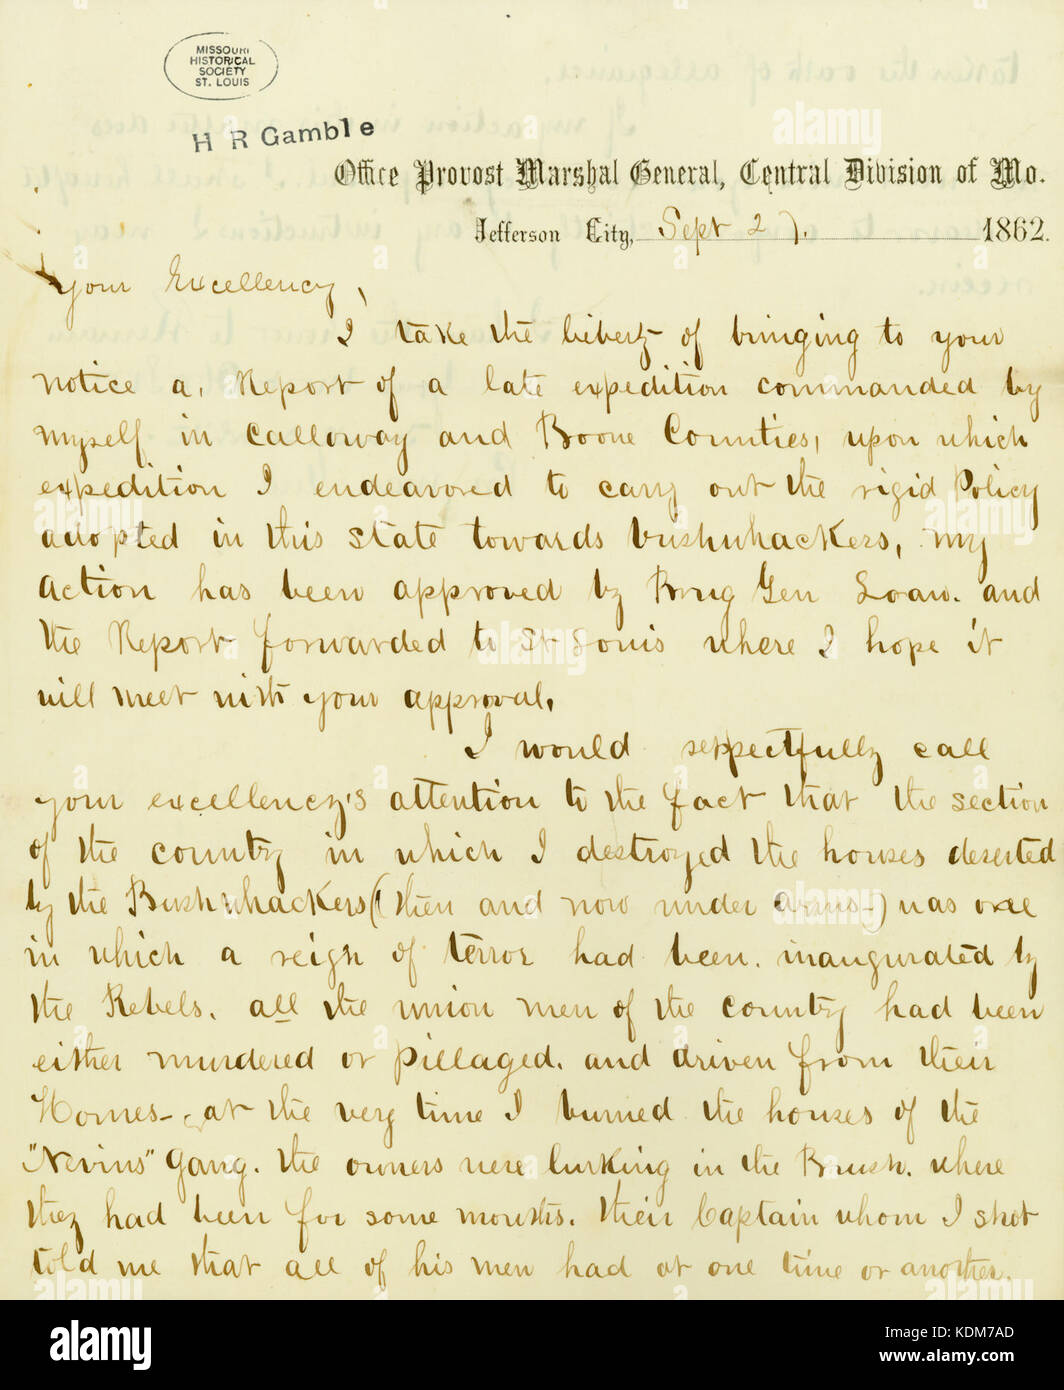 MISSOURI
HISTORICAL
SOCIETY
ST. LOUIS
H R Gamble
Office Provost Marshal General, Central Division of Mo.
Jefferson City, Sept 27. 1862.
Your Excellency,
I take the liberty of bringing to your
notice a, Report of a late expedition commanded by
myself in Calloway and Boone Counties, upon which
expedition I endeavored to carry out the rigid Policy
adopted in this state towards bushwhackers, my
action has been approved by Brig Gen Loan. and
the Report forwarded to St Louis where I hope it
will meet with your approval.
I would respectfully call
your excellency's attention to the fact that the section
of the country in which I destroyed the houses deserted
by the Bushwhackers (then and now under arms-) was one
in which a reign of terror had been. inaugurated by
the Rebels. all the union men of the country had been
either murdered or pillaged. and driven from their
Homes-. at the very time I burned the houses of the
"Nevins" Gang. the owners were lurking in the Brush. where
they had been for some months. their Captain whom I shot
told me that all of his men had at one time or another.
taken the oath of allegiance.
alamy
Image ID: KDM7AD
www.alamy.com